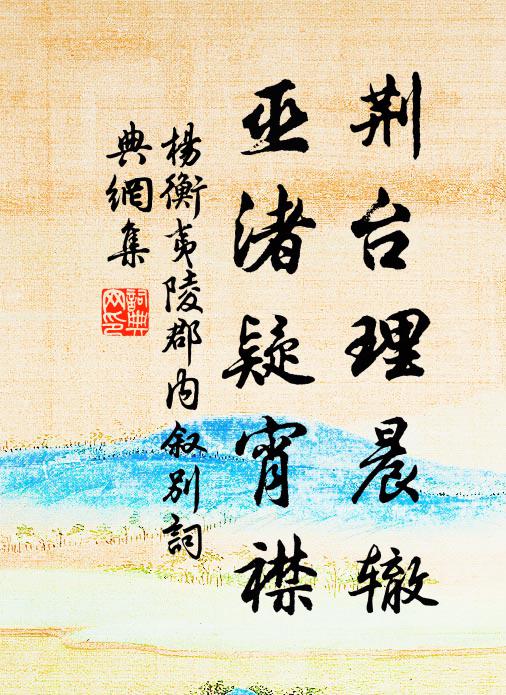 荆台理晨辙
巫渚疑宵襟
杨衡夷陵郡内叙别詞
典網集
詞典
网印